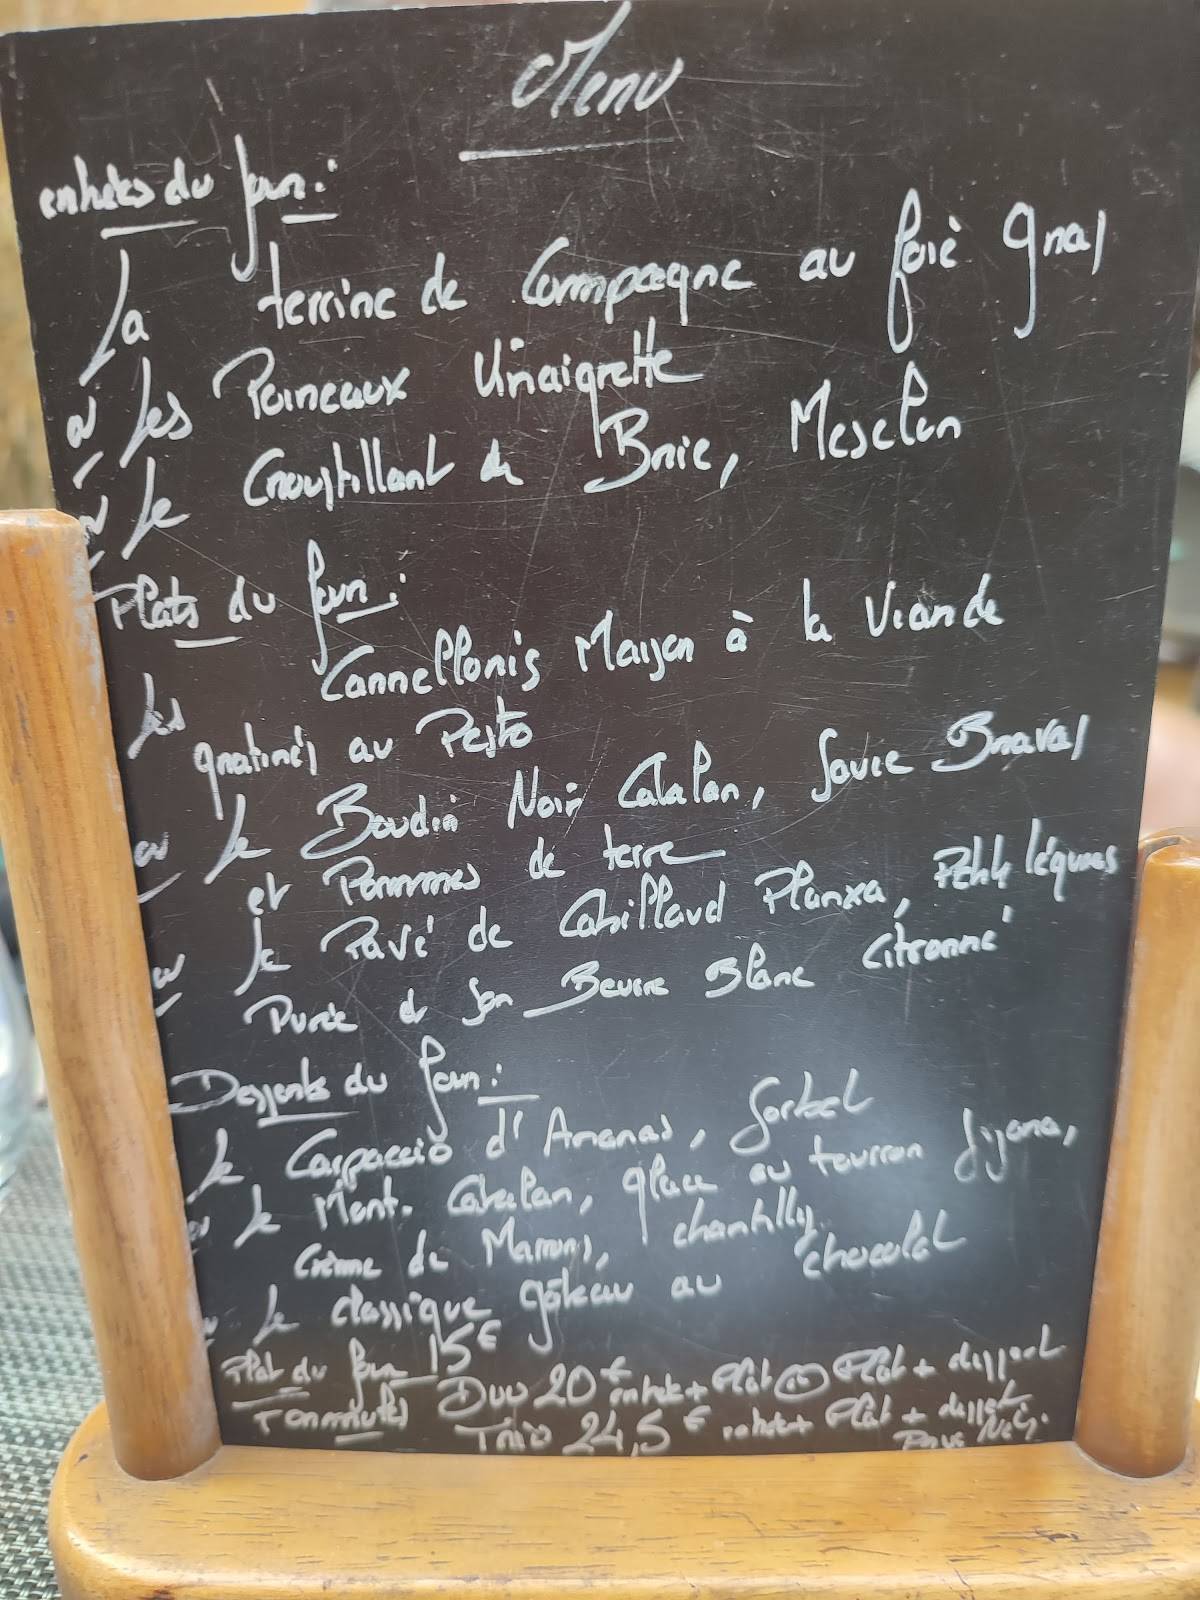 Menu
entrées du jour :
La terrine de Campagne au foie gras
ou les Poireaux Vinaigrette
ou le Croustillant de Brie, Mesclun
Plats du jour :
les Cannellonis Maison à la Viande
gratinés au Pesto
ou le Boudin Noir Catalan, Sauce Bravas
et Pommes de terre
ou le Pavé de Cabillaud Planxa, Petits légumes
Purée et son Beurre Blanc citronné
Desserts du jour :
le Carpaccio d'Ananas, Sorbet
ou le Mont-Catalan, glace au tourron Jijona,
Crème de Marrons, chantilly
ou le classique gâteau au chocolat
Plat du jour 15€
Formules Duo 20€ entrée + Plat ou Plat + dessert
Trio 24,5€ entrée + Plat + dessert
Prix Net.